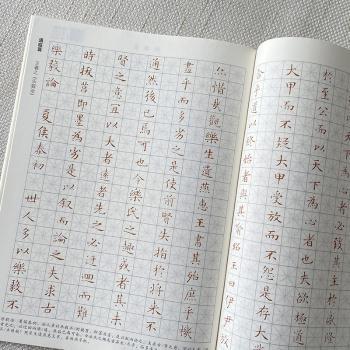 王羲之《樂毅論》
樂毅論 夏侯泰初 世人多以樂毅不
時拔莒即墨為劣是以叙而論之夫求古
賢之意宜以大者遠者先之必迂迴而難
通然後已焉可也今樂氏之趣或者其未
盡乎而多劣之是使前賢失指於將來不
亦惜哉觀樂生遺燕惠王書其殆庶乎機
合乎道以終始者與其喻昭王曰伊尹放
大甲而不疑大甲受放而不怨是存大業
於至公而以天下為心者也夫欲極道